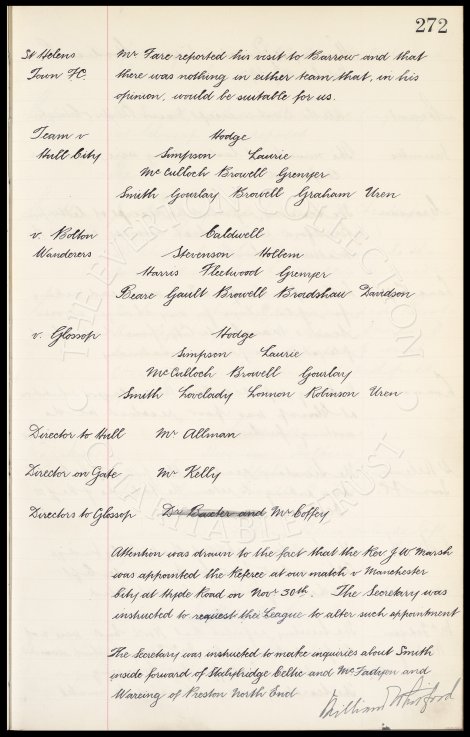 272
St Helens Mr Fare reported his visit to Barrow and that
Town FC. there was nothing in either team that, in his
opinion, would be suitable for us.
Team v Hodge
Hull City Simpson Laurie
McCulloch Browell Grenyer
Smith Gourlay Browell Graham Uren
v. Bolton Caldwell
Wanderers Stevenson Holbem
Harris Fleetwood Grenyer
Beare Gault Browell Bradshaw Davidson
v. Glossop Hodge
Simpson Laurie
McCulloch Browell Gourlay
Smith Lovelady Lonnon Robinson Uren
Director to Hull Mr Allman
Director on Gate Mr Kelly
Directors to Glossop Dr Baxter and Mr Coffey
Attention was drawn to the fact that the Rev J W Marsh
was appointed the Referee at our match v Manchester
City at Hyde Road on Novr 30th. The Secretary was
instructed to request the League to alter such appointment
The Secretary was instructed to make inquiries about Smith
inside forward of Stalybridge Celtic and McFadyen and
Wareing of Preston North End
William Whitford
THE EVERTON COLLECTION
CHARITABLE TRUST